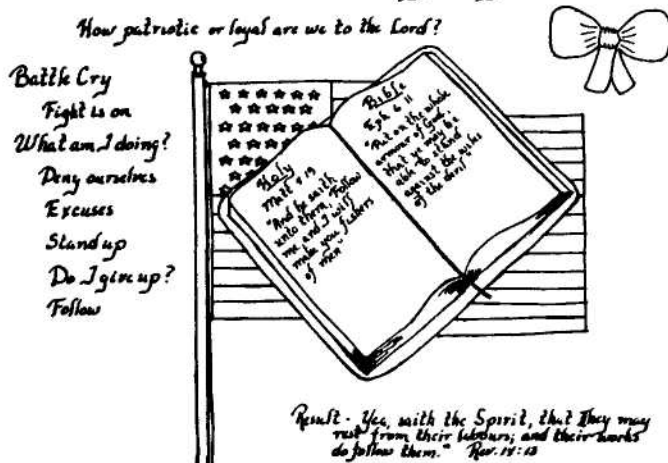 How patriotic or loyal are we to the Lord?
Battle Cry
Fight is on
What am I doing?
Deny ourselves
Excuses
Stand up
Do I give up?
Follow
Holy
Matt 4 19
"And he saith
unto them, Follow
me, and I will
make you fishers
of men"
Bible
Eph 6 11
"Put on the whole
armour of God,
that ye may be
able to stand
against the wiles
of the devil"
Result - Yea, saith the Spirit, that They may
rest from their labours; and their works
do follow them." Rev. 14:13